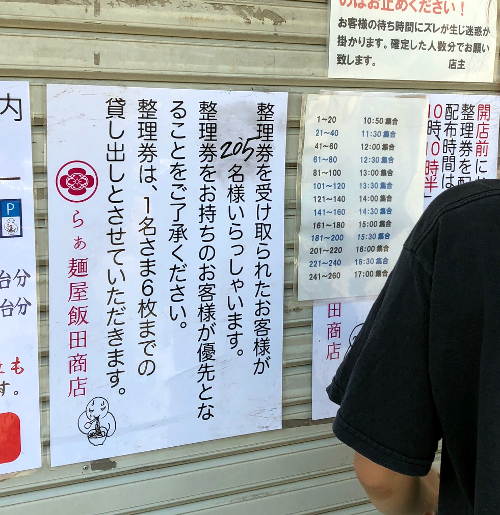 のはお止めください！
お客様の待ち時間にズレが生じ迷惑が
掛かります。確定した人数分でお願い
致します。
店主
整理券を受け取られたお客様が
205名様いらっしゃいます。
整理券をお持ちのお客様が優先とな
ることをご了承ください。
整理券は、1名さま6枚までの
貸し出しとさせていただきます。
らぁ麺屋飯田商店
1~20 10:50集合
21~40 11:30集合
41~60 12:00集合
61~80 12:30集合
81~100 13:00集合
101~120 13:30集合
121~140 14:00集合
141~160 14:30集合
161~180 15:00集合
181~200 15:30集合
201~220 16:00集合
221~240 16:30集合
241~260 17:00集合
開店前に
整理券を配
配布時間は
10時10時半
商店
内
P
台分
台分
も
す。